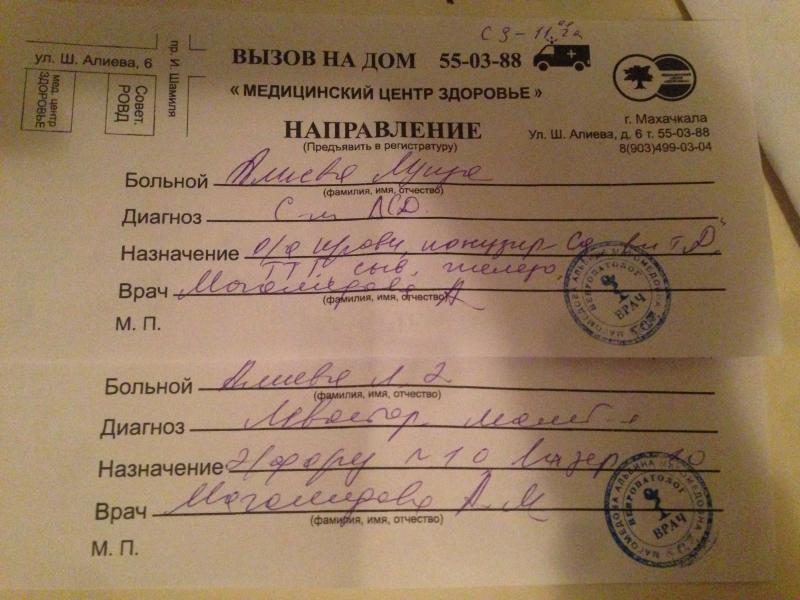 С 9-11
ул. Ш. Алиева, 6
пр. И. Шамиля
мед. центр ЗДОРОВЬЕ
Совет. РОВД
ВЫЗОВ НА ДОМ 55-03-88
« МЕДИЦИНСКИЙ ЦЕНТР ЗДОРОВЬЕ »
НАПРАВЛЕНИЕ
(Предъявить в регистратуру)
г. Махачкала
Ул. Ш. Алиева, д. 6 т. 55-03-88
8(903)499-03-04
Больной Алиева
(фамилия, имя, отчество)
Диагноз
Назначение о/а крови, вит Д,
ТТГ, сыв. железо,
Врач Магомедова А
(фамилия, имя, отчество)
М. П.
МАГОМЕДОВА АЛЬБИНА МАГОМЕДОВНА
НЕВРОПАТОЛОГ
ВРАЧ
Больной Алиева Л. 2
(фамилия, имя, отчество)
Диагноз
Назначение №10 Лазер 10
Врач Магомедова А. М
(фамилия, имя, отчество)
М. П.
МАГОМЕДОВА АЛЬБИНА МАГОМЕДОВНА
НЕВРОПАТОЛОГ
ВРАЧ